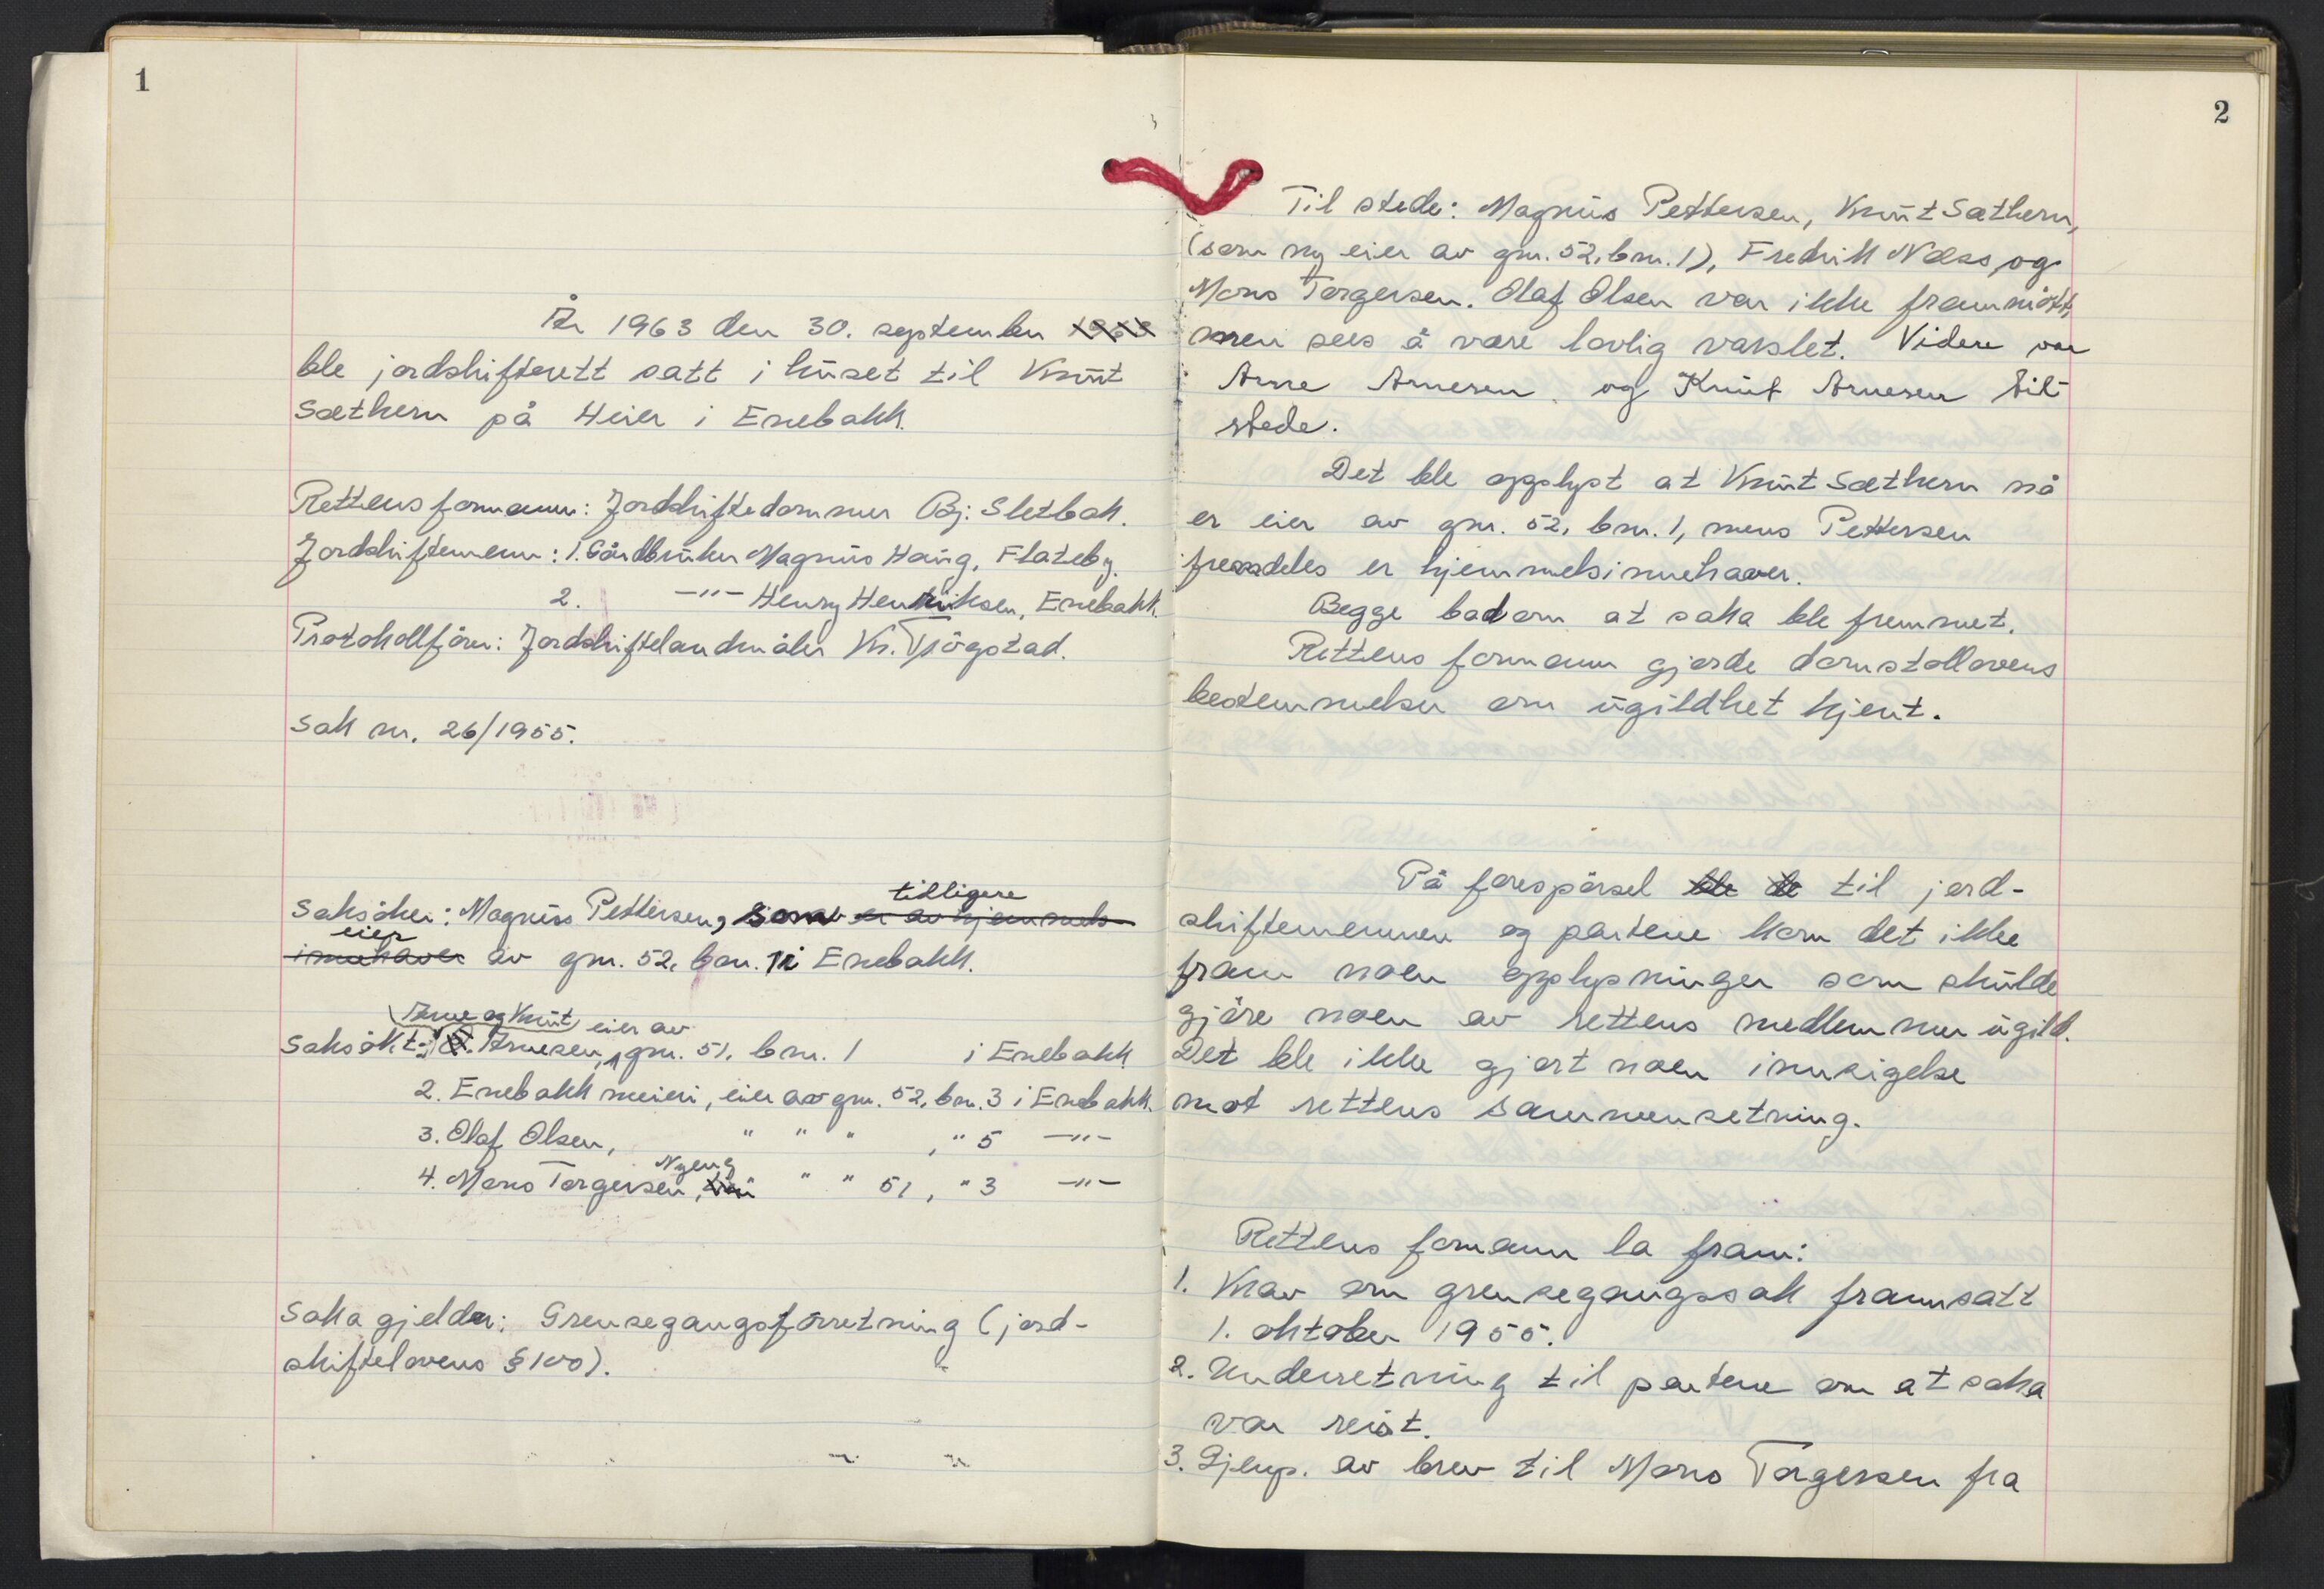 1
År 1963 den 30. september 1963
ble jordskifterett satt i huset til Knut
Sæthern på Heier i Enebakk.
Rettens formann: Jordskiftedommer Bj. Sletbak.
Jordskiftemenn: 1. Gårdbruker Magnus Haug, Flateby.
2. —"— Henry Henriksen, Enebakk.
Protokollfører: Jordskiftelandmåler Kr. Tjøgstad.
Sak nr. 26/1955.
tidligere
Saksøker: Magnus Pettersen, som er av hjemmels-
eier
innehaver av gnr. 52, bnr. 1 i Enebakk.
Arne og Knut eier av
Saksøkt: 1. Arnesen, gnr. 51, bnr. 1 i Enebakk
2. Enebakk meieri, eier av gnr. 52, bnr. 3 i Enebakk.
3. Olaf Olsen, " " " , " 5 —"—
Nyeng
4. Mons Torgersen, " " 51, " 3 —"—
Saka gjelder: Grensegangsforretning (jord-
skiftelovens § 100).
2
Til stede: Magnus Pettersen, Knut Sæthern,
(som ny eier av gnr. 52, bnr. 1), Fredrik Næss, og
Mons Torgersen. Olaf Olsen var ikke frammøtt,
men sees å være lovlig varslet. Videre var
Arne Arnesen og Knut Arnesen til
stede.
Det ble opplyst at Knut Sæthern nå
er eier av gnr. 52, bnr. 1, mens Pettersen
fremdeles er hjemmelsinnehaver.
Begge bad om at saka ble fremmet.
Rettens formann gjorde domstollovens
bestemmelser om ugildhet kjent.
På forespørsel ble de til jord-
skiftemennene og partene kom det ikke
fram noen opplysninger som skulde
gjøre noen av rettens medlemmer ugild.
Det ble ikke gjort noen innsigelse
mot rettens sammensetning.
Rettens formann la fram:
1. Krav om grensegangssak framsatt
1. oktober 1955.
2. Underretning til partene om at saka
var reist.
3. Gjenp. av brev til Mons Torgersen fra